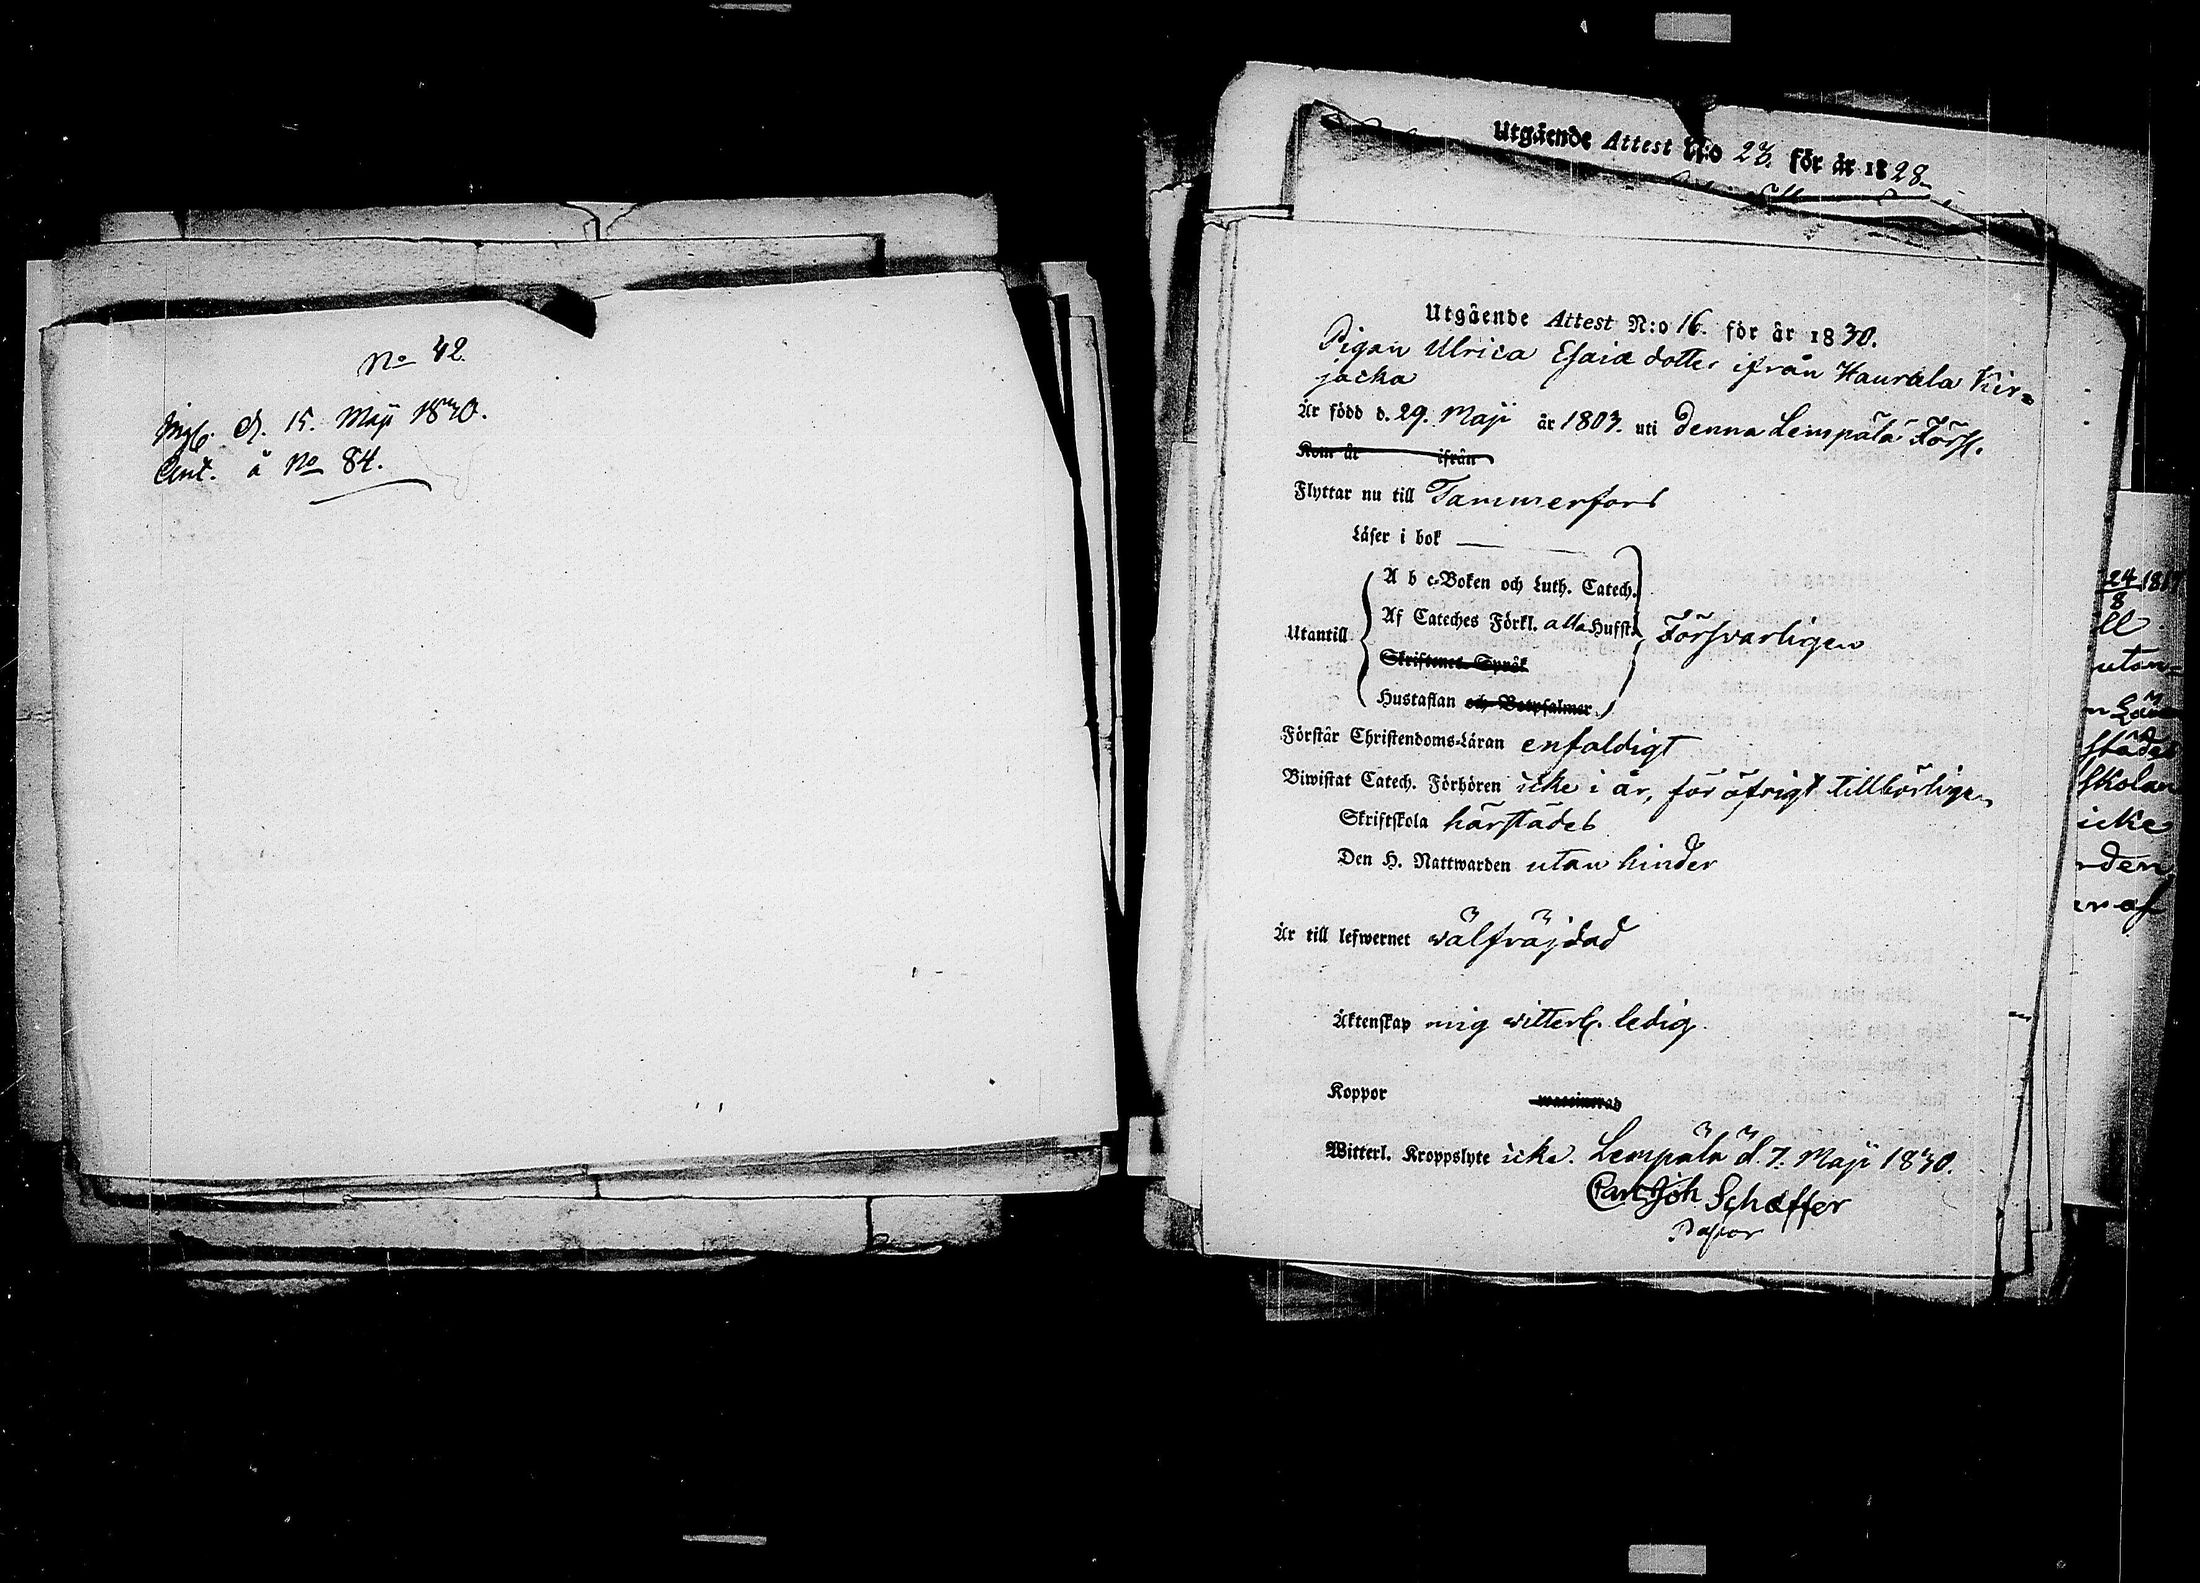 No 42
Ingf. d. 15. Maji 1830.
Ant. å No 84.
Utgående Attest N:o 23. för år 1828.
Utgående Attest N:o 16. för år 1830.
Pigan Ulrica Esaiæ dotter ifrån Haurala Kir=
jacka
Är född d. 29. Maji år 1803. uti denna Lempälä Förs.
Kom år ifrån
Flyttar nu till Tammerfors
Läser i bok
A b c-Boken och Luth. Catech.
Af Cateches Förkl. alla Hufst.
Utantill Försvarligen
Skriftenes Språk
Hustaflan och Botpsalmer
Förstår Christendoms-Läran enfaldigt
Biwistat Catech. Förhören icke i år, för öfrigt tillbörligen
Skriftskola härstädes
Den H. Nattwarden utan hinder
Är till lefwernet välfräjdad
Äktenskap mig vitterl. ledig.
Koppor waccinerad
Witterl. Kroppslyte icke. Lempälä d. 7. Maji 1830.
Carl Joh Schæffer
Pastor
24 1817
8
ll
utan=
städes
skolan
icke
rden
er af